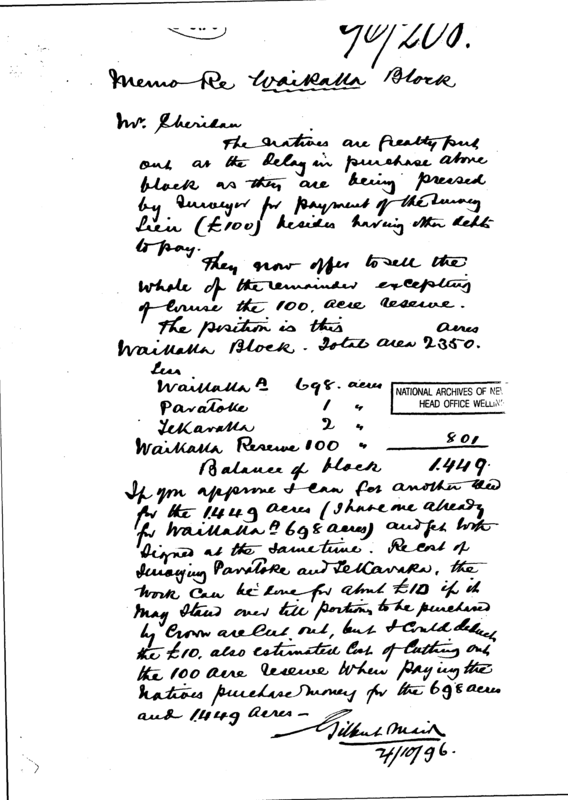 Memo Re Waikatta Block
Mr. Sheridan
The Natives are greatly put
out at the delay in purchase above
block as they are being pressed
by Surveyor for payment of the Survey
Lien (£100) besides having other debts
to pay.
They now offer to sell the
whole of the remainder excepting
of course the 100, acre reserve.
The position is this acres
Waikatta Block. Total area 2350.
Less
Waikatta A 698. acres
NATIONAL ARCHIVES OF NE
HEAD OFFICE WELLIN
Paratoke 1 "
2 "
Waikatta Reserve 100 " 801
Balance of block 1.449.
If you approve I can for another deed
for the 1449 acres (I have one already
for Waikatta A 698 acres) and get both
signed at the same time. Re cost of
surveying Paratoke and the
work can be done for about £10 if it
may stand over till portions to be purchased
by Crown are cut out, but I could deduct
the £10. also estimated cost of cutting out
the 100 acre reserve when paying the
Natives purchase money for the 698 acres
and 1449 acres —
Gilbert Mair
4/10/96.